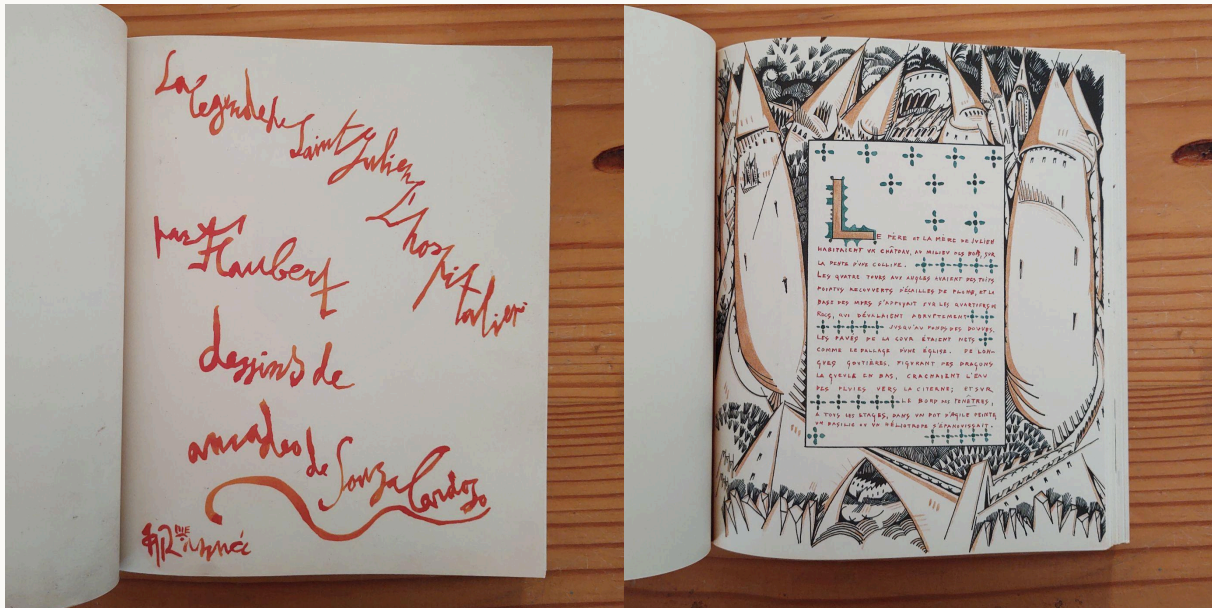 La
legende de
Saint Julien
L'hos
pit
talier
par
Flaubert
dessins de
amadeo
de Souza Cardozo
LE PÈRE ET LA MÈRE DE JULIEN
HABITAIENT UN CHÂTEAU, AU MILIEU DES BOIS, SUR
LA PENTE D'UNE COLLINE.
LES QUATRE TOURS AUX ANGLES AVAIENT DES TOITS
POINTUS RECOUVERTS D'ÉCAILLES DE PLOMB, ET LA
BASE DES MURS S'APPUYAIT SUR LES QUARTIERS DE
ROCS, QUI DÉVALAIENT ABRUPTEMENT
JUSQU'AU FONDS DES DOUVES.
LES PAVÉS DE LA COUR ÉTAIENT NETS
COMME LE DALLAGE D'UNE ÉGLISE. DE LON-
GUES GOUTIÈRES, FIGURANT DES DRAGONS
LA GUEULE EN BAS, CRACHAIENT L'EAU
DES PLUIES VERS LA CITERNE; ET SUR
LE BORD DES FENÊTRES,
A TOUS LES ETAGES, DANS UN POT D'AGILE PEINTE,
UN BASILIC OU UN HÉLIOTROPE S'ÉPANOUISSAIT.